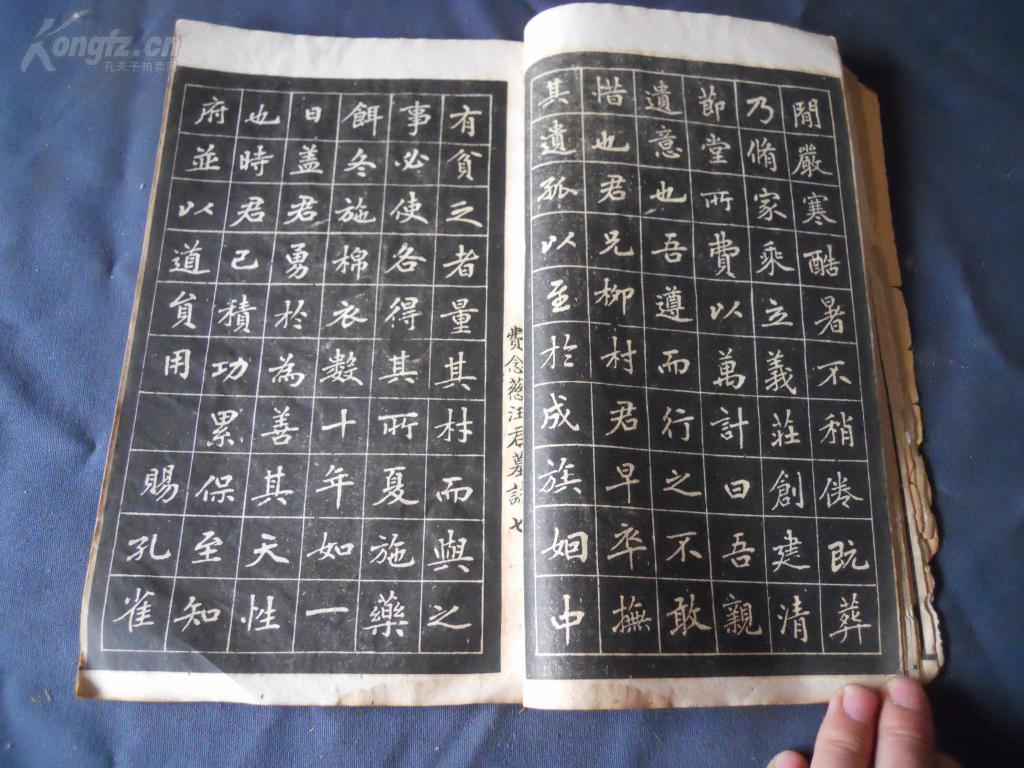 Kongfz.cn
孔夫子拍卖网
閒嚴寒酷暑不稍倦既葬
乃脩家乘立義莊創建清
節堂所費以萬計曰吾親
遺意也吾遵而行之不敢
惜也君兄柳村君早卒撫
其遺孤以至於成族姻中
費念慈汪君墓誌 七
有貧乏者量其材而與之
事必使各得其所夏施藥
餌冬施棉衣數十年如一
日盖君勇於為善其天性
也時君已積功累保至知
府並以道員用 賜孔雀